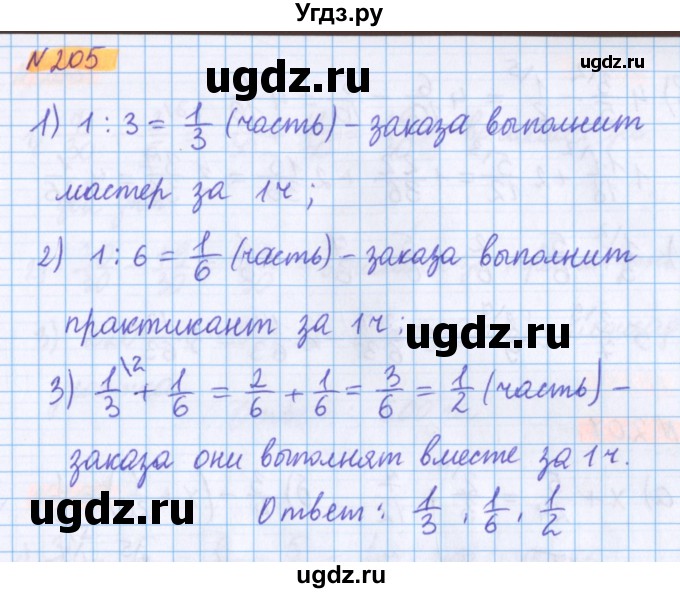 Угдз.ру
N 205
ugdz.ru
ugdz.ru
1) 1 : 3 = 1/3 (часть) – заказа выполнит
мастер за 1ч;
2) 1 : 6 = 1/6 (часть) – заказа выполнит
практикант за 1ч;
ugdz.ru
3) 1/3 \2 + 1/6 = 2/6 + 1/6 = 3/6 = 1/2 (часть) –
заказа они выполнят вместе за 1ч.
ugdz.ru
Ответ: 1/3, 1/6, 1/2
ugdz.ru